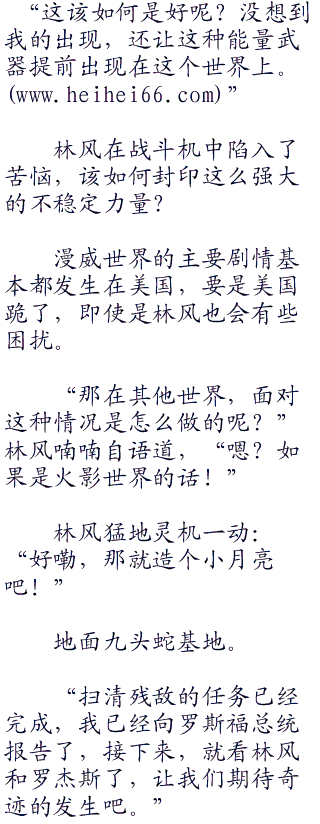 “这该如何是好呢？没想到
我的出现，还让这种能量武
器提前出现在这个世界上。
(www.heihei66.com)”
林风在战斗机中陷入了
苦恼，该如何封印这么强大
的不稳定力量？
漫威世界的主要剧情基
本都发生在美国，要是美国
跪了，即使是林风也会有些
困扰。
“那在其他世界，面对
这种情况是怎么做的呢？”
林风喃喃自语道，“嗯？如
果是火影世界的话！”
林风猛地灵机一动：
“好嘞，那就造个小月亮
吧！”
地面九头蛇基地。
“扫清残敌的任务已经
完成，我已经向罗斯福总统
报告了，接下来，就看林风
和罗杰斯了，让我们期待奇
迹的发生吧。”